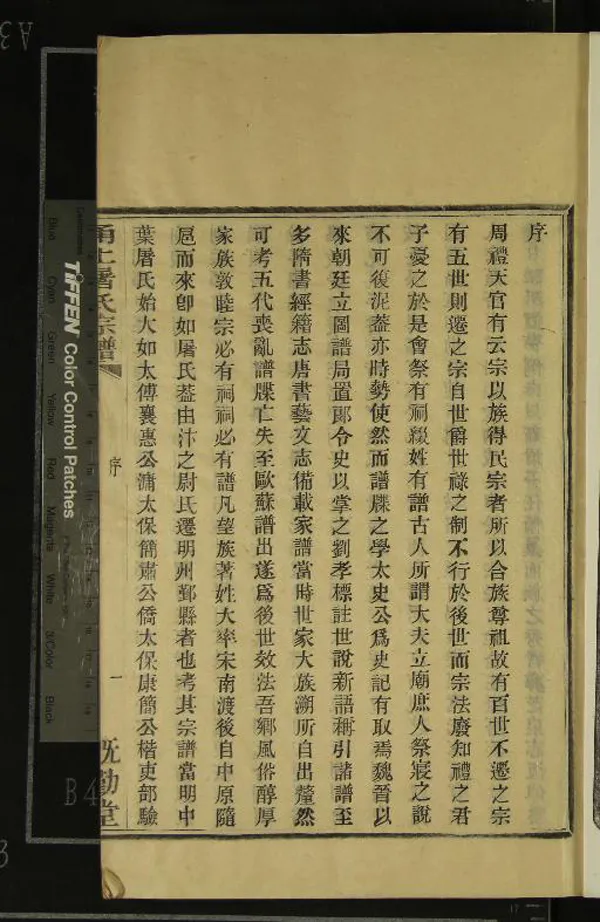 序
周禮天官有云宗以族得民宗者所以合族尊祖故有百世不遷之宗
有五世則遷之宗自世爵世祿之制不行於後世而宗法廢知禮之君
子憂之於是會祭有祠綴姓有譜古人所謂大夫立廟庶人祭寢之說
不可復泥葢亦時勢使然而譜牒之學太史公爲史記有取焉魏晉以
來朝廷立圖譜局置郎令史以掌之劉孝標註世說新語稱引諸譜至
多隋書經籍志唐書藝文志備載家譜當時世家大族溯所自出釐然
可考五代喪亂譜牒亡失至歐蘇譜出遂爲後世效法吾鄉風俗醇厚
家族敦睦宗必有祠祠必有譜凡望族著姓大率宋南渡後自中原隨
扈而來卽如屠氏葢由汴之尉氏遷明州鄞縣者也考其宗譜當明中
葉屠氏始大如太傅襄惠公滽太保簡肅公僑太保康簡公楷吏部驗
甬上屠氏宗譜
序
一
既勤堂
TIFFEN Color Control Patches
Blue Cyan Green Yellow Red Magenta White 3/Color Black
B4
A3
3